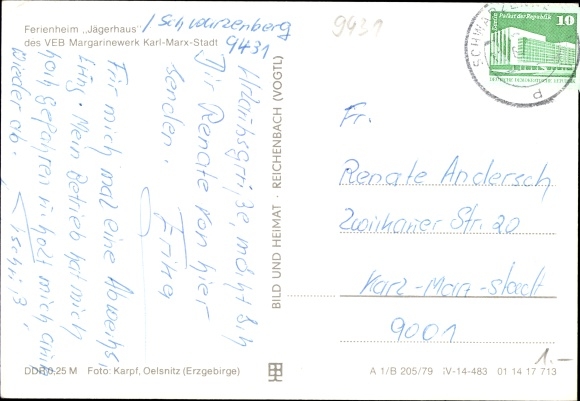 Ferienheim „Jägerhaus" / Schwarzenberg
des VEB Margarinewerk Karl-Marx-Stadt 9431
9431
Urlaubsgrüße, möcht ich
Dir Renate von hier
senden. Erika
Für mich mal eine Abwechs-
lung. Mein Betrieb hat mich
hoch gefahren u. holt mich auch
wieder ab.
BILD UND HEIMAT · REICHENBACH (VOGTL)
Palast der Republik 10
DEUTSCHE DEMOKRATISCHE REPUBLIK
Fr.
Renate Andersch
Zwickauer Str. 20
Karl-Marx-Stadt
9001
1.—
DDR 0,25 M Foto: Karpf, Oelsnitz (Erzgebirge)
A 1/B 205/79 IV-14-483 01 14 17 713